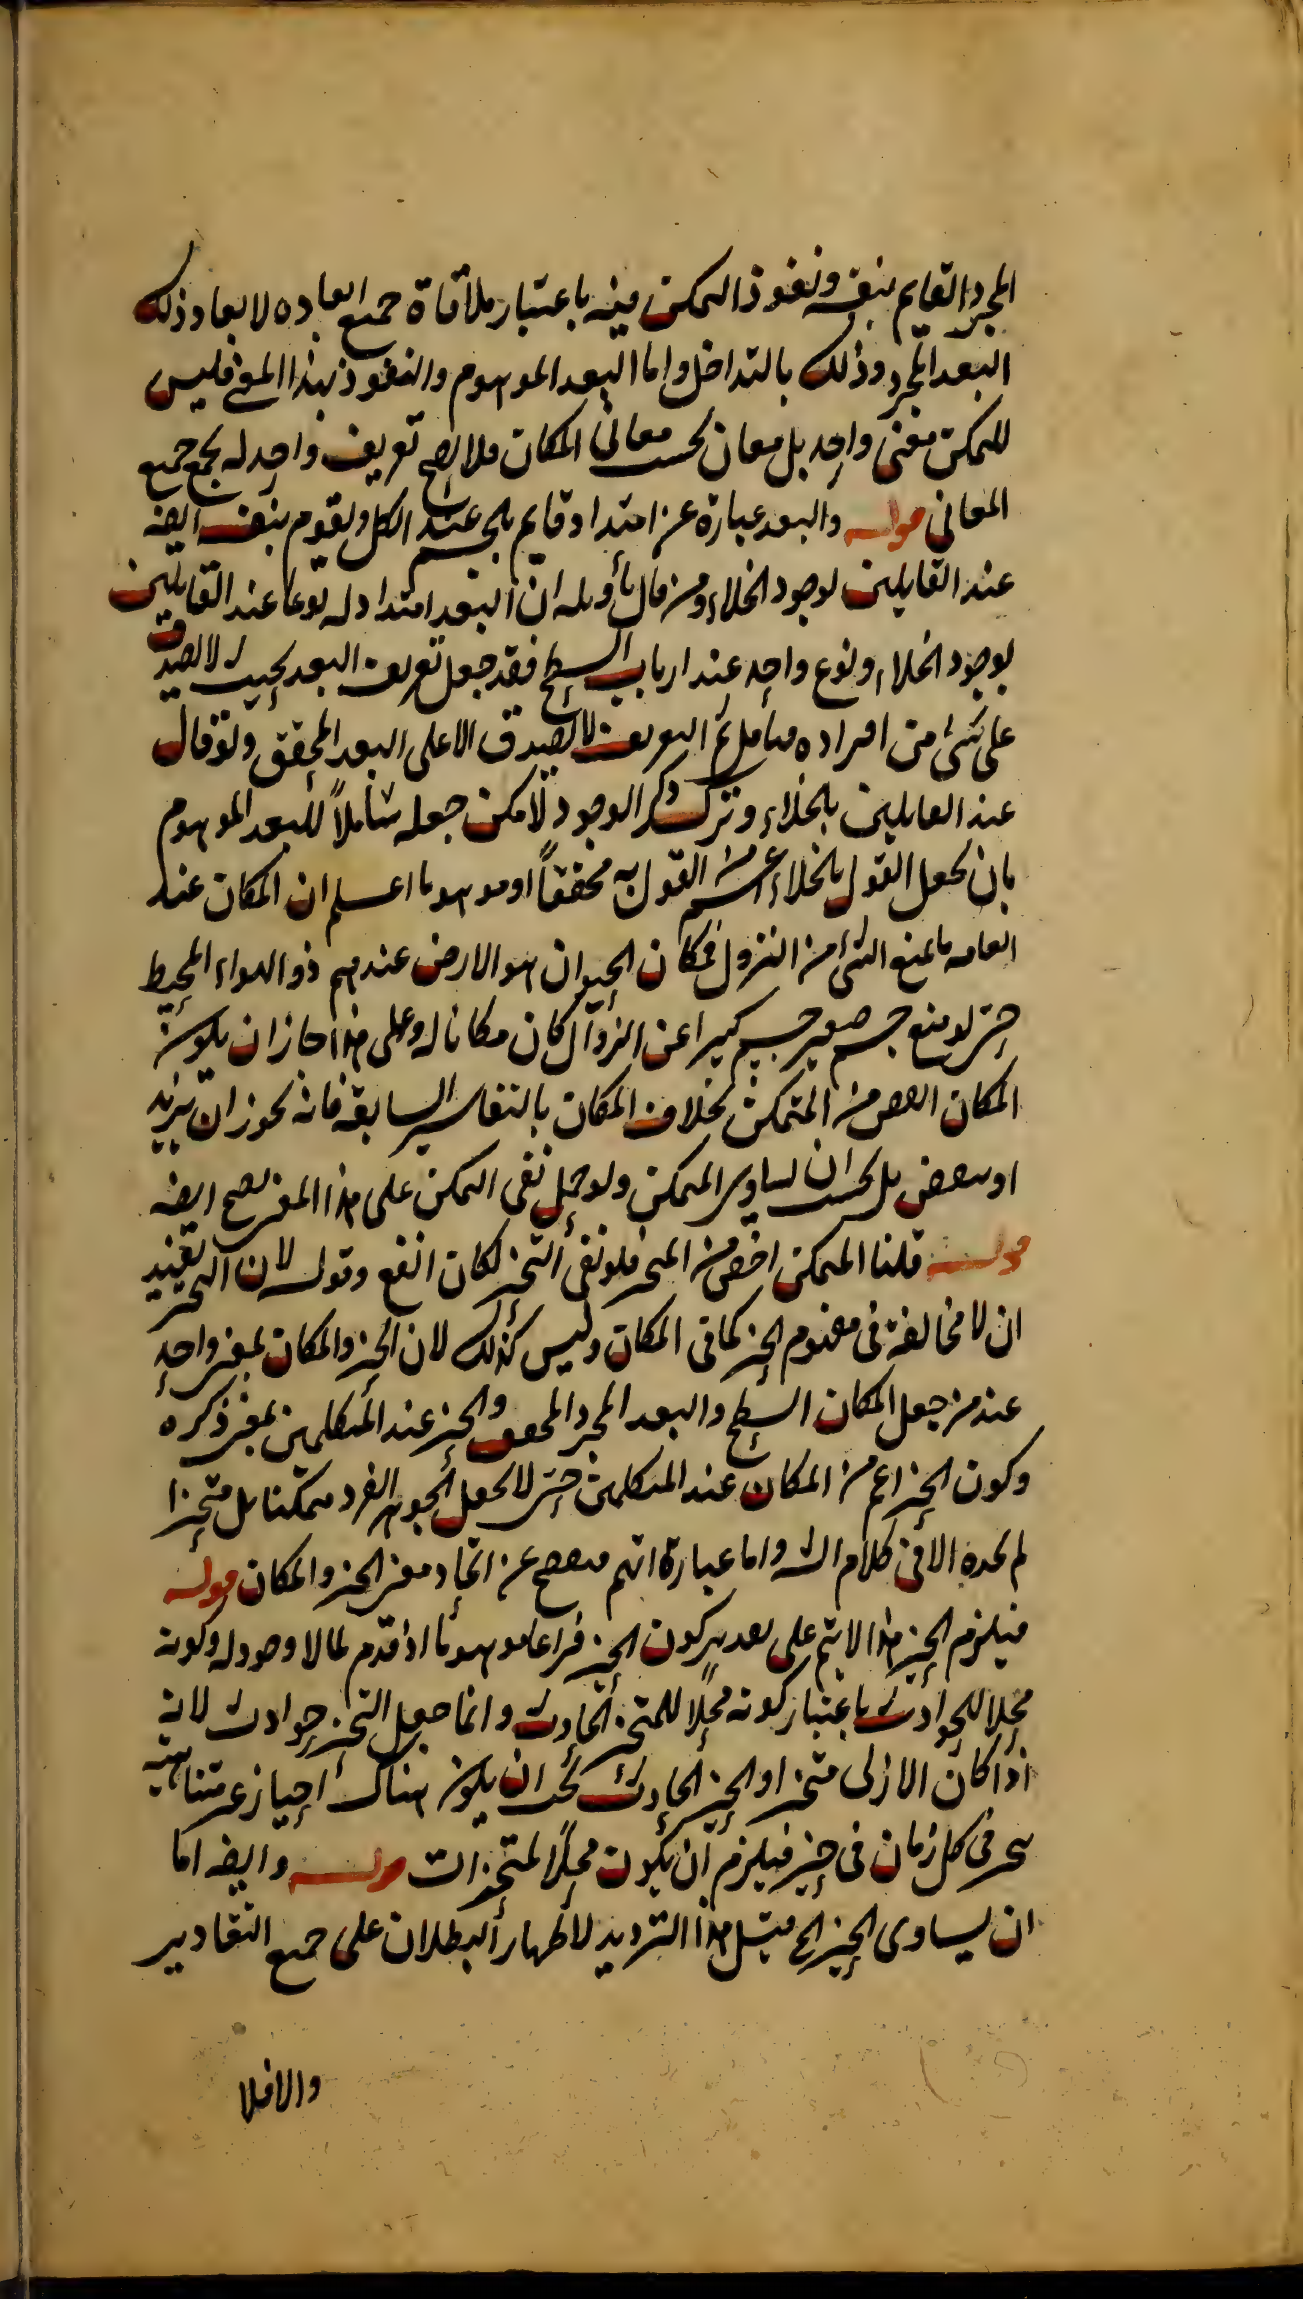 المجرد القايم بنفسه ونفوذ التمكن فيه باعتبار ملاقاة جميع ابعاده لابعاد ذلك
البعد المجرد وذلك بالتداخل واما البعد الموهوم والنفوذ بهذا المعنى فليس
للتمكن معنى واحد بل معان بحسب معانى المكان فلا يصح تعريف واحد له يجمع جميع
المعانى قوله والبعد عبارة عن امتداد قايم بالجسم عند الكل ويقوم بنفسه ايضه
عند القايلين بوجود الخلاء ومن قال تأويله ان البعد امتداد له نوعا عند القايلين
بوجود الخلاء ونوع واحد عند ارباب السطح فقد جعل تعريف البعد بحيث لا يصدق
على شئ من افراده فتأمل ثم التعريف لا يصدق الا على البعد المحقق ولو قال
عند القايلين بالخلاء وترك ذكر الوجود لامكن جعله شاملاً للبعد الموهوم
بان يجعل القول بالخلاء اعم من القول به محققاً او موهوما اعلم ان المكان عند
العامه ما يمنع الشئ من النزول فمكان الحيوان هو الارض عندهم ذو الهواء المحيط
حتى لو منع جسم صغير جسم كبيرا عن النزول كان مكانا له وعلى هذا جاز ان يكون
المكان انقص من المتمكن بخلاف المكان بالتفاسير السابقه فانه لا يجوز ان يزيد
او ينقص بل يجب ان يساوى المتمكن ولو حمل نفى التمكن على هذا المعنى يصح ايضه
قوله قلنا المتمكن اخص من المتحيز فلو نفى التحيز لكان انفع وقوله لان التحيز يفيد
ان لا مخالفة فى مفهوم الحيز كما فى المكان وليس كذلك لان الحيز والمكان بمعنى واحد
عند من جعل المكان السطح والبعد المجرد المحقق والحيز عند المتكلمين بمعنى ذكره
وكون الحيز اعم من المكان عند المتكلمين حتى لا يجعل الجوهر الفرد متمكنا بل متحيزا
لم نجده الا فى كلام الشه واما عبارة اتهم يفصح عن اتحاد معنى الحيز والمكان قوله
فيلزم الحيز هذا لا يتم على تقدير كون الحيز فراغا موهوما اذ لا قدم لما لا وجود له وكونه
محلا للحوادث باعتبار كونه محلًا للمتحيز الحادث وانما جعل التحيز حوادث لانه
اذا كان الازلى متحيزا والحيز الحادث يجب ان يكون هناك احياز غير متناهيه
يتحيز فى كل زمان فى حيز فيلزم ان يكون محلًا لتحيزات قوله وايضه اما
ان يساوى الحيز الخ قيل هذا الترديد لاظهار البطلان على جميع التقادير
والا فلا